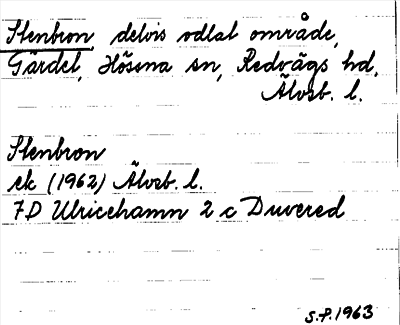 Stenbron, delvis odlat område,
Gärdet, Hössna sn, Redvägs hd,
Älvsb. l.
Stenbron
ek (1962) Älvsb. l.
7D Ulricehamn 2 c Duvered
S.P. 1963